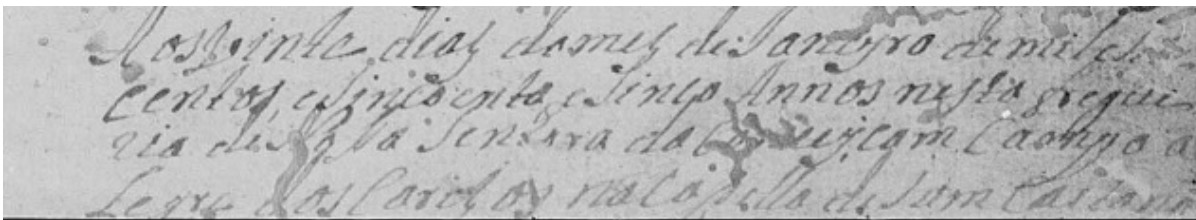 Aos vinte dias do mes de Janeyro de mil e set
centos, e sincoenta e sinco Annos nesta fregui
zia de Nosa Senhora da Conceiçam Campo a
Legre dos Carijos na Capella de Sam Caitano